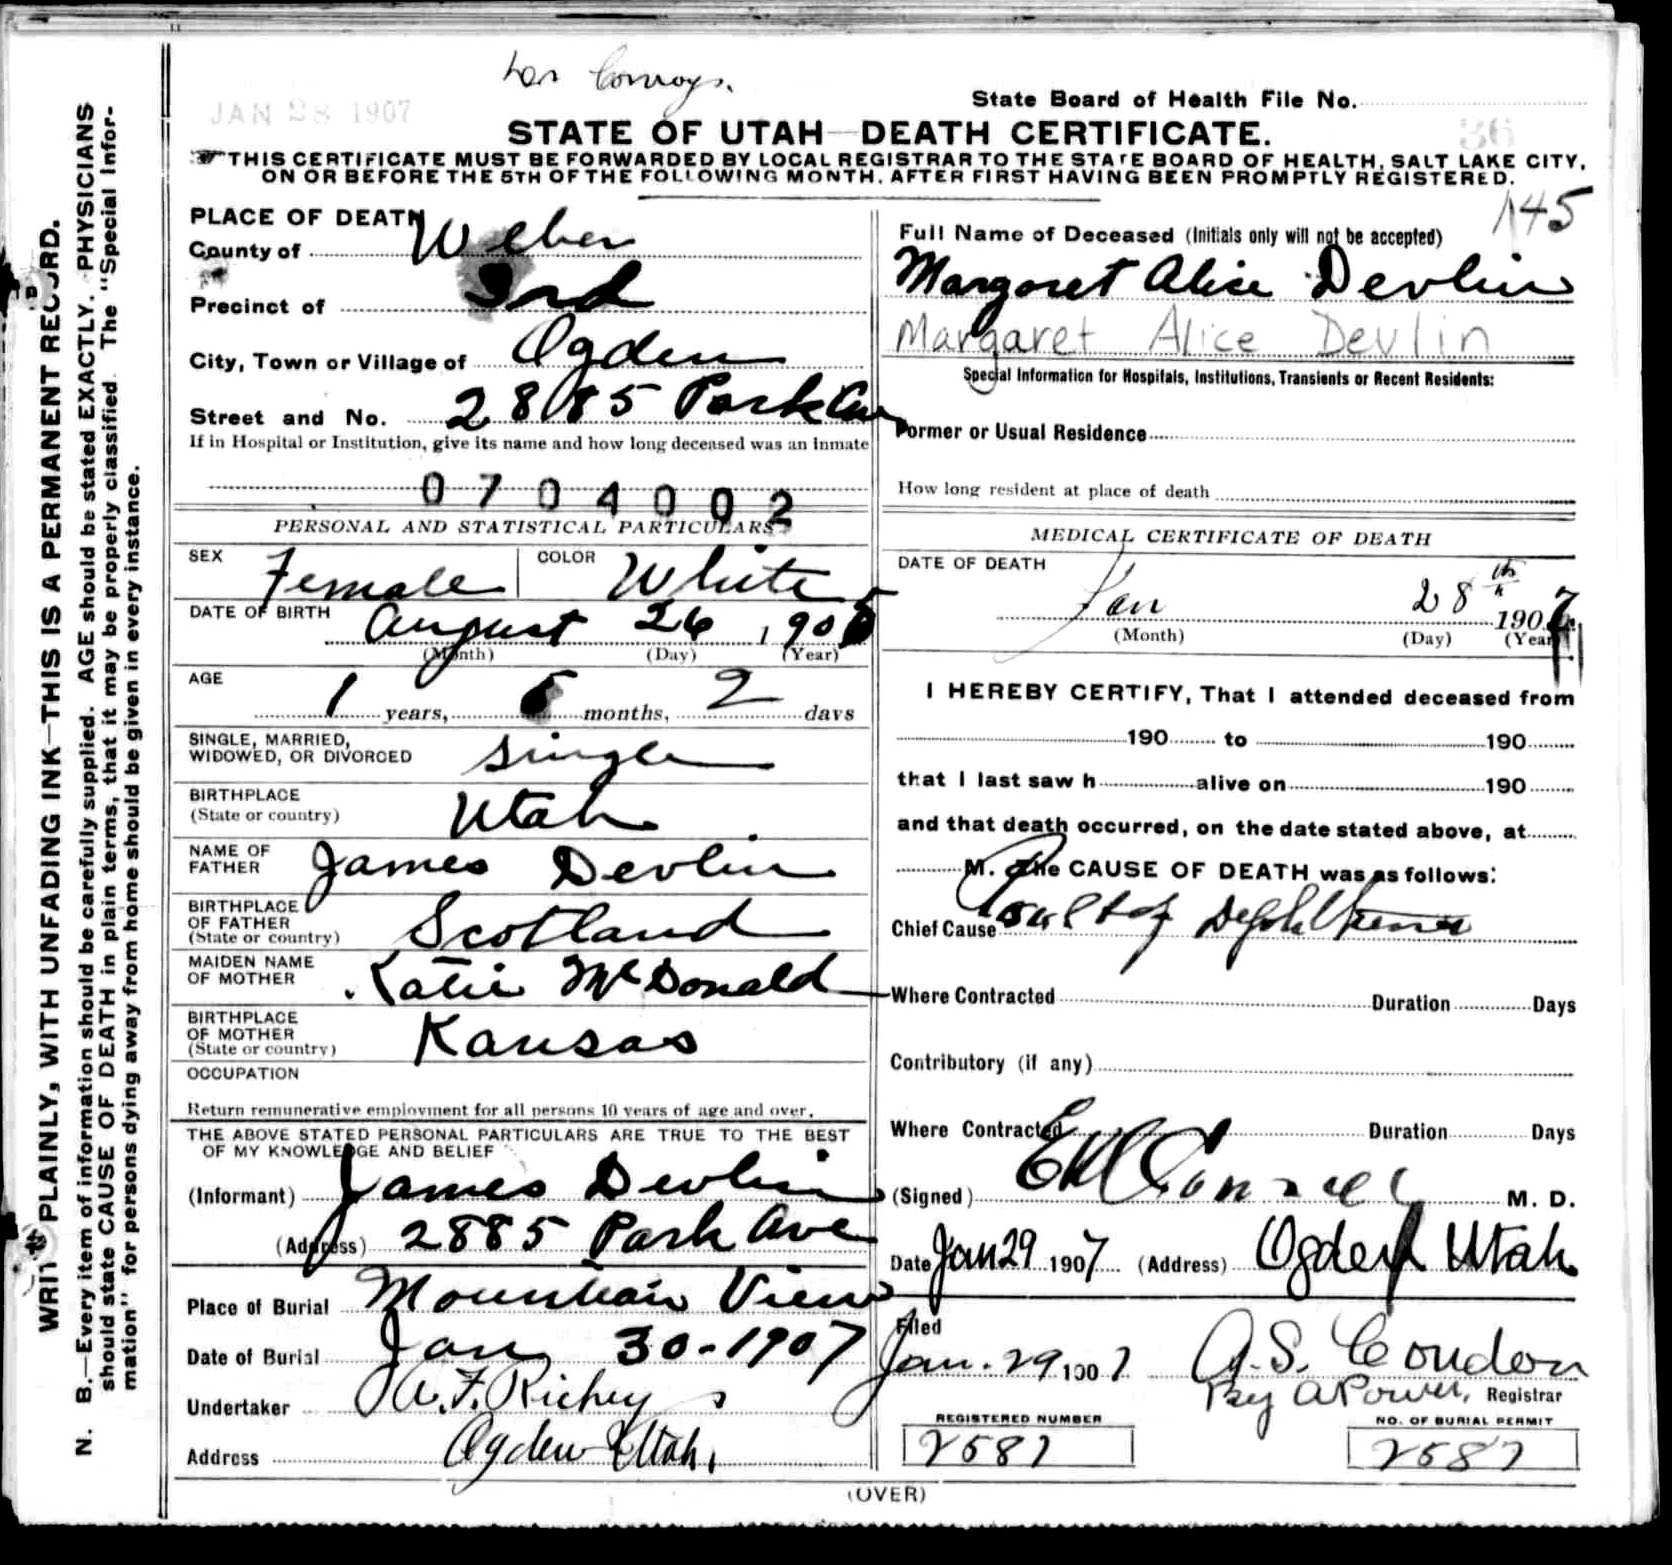 JAN 28 1907
State Board of Health File No.
36
STATE OF UTAH—DEATH CERTIFICATE.
THIS CERTIFICATE MUST BE FORWARDED BY LOCAL REGISTRAR TO THE STATE BOARD OF HEALTH, SALT LAKE CITY,
ON OR BEFORE THE 5TH OF THE FOLLOWING MONTH, AFTER FIRST HAVING BEEN PROMPTLY REGISTERED.
145
PLACE OF DEATH
County of Weber
Precinct of 3rd
City, Town or Village of Ogden
Street and No. 2885 Park Ave
If in Hospital or Institution, give its name and how long deceased was an inmate
0704002
PERSONAL AND STATISTICAL PARTICULARS
SEX Female COLOR White
DATE OF BIRTH August 26, 1905
(Month) (Day) (Year)
AGE
1 years, 5 months, 2 days
SINGLE, MARRIED,
WIDOWED, OR DIVORCED Single
BIRTHPLACE
(State or country) Utah
NAME OF
FATHER James Devlin
BIRTHPLACE
OF FATHER
(State or country) Scotland
MAIDEN NAME
OF MOTHER Katie McDonald
BIRTHPLACE
OF MOTHER
(State or country) Kansas
OCCUPATION
Return remunerative employment for all persons 10 years of age and over.
THE ABOVE STATED PERSONAL PARTICULARS ARE TRUE TO THE BEST
OF MY KNOWLEDGE AND BELIEF
(Informant) James Devlin
(Address) 2885 Park Ave
Place of Burial Mountain View
Date of Burial Jan 30-1907
Undertaker A. F. Richey
Address Ogden Utah,
Full Name of Deceased (Initials only will not be accepted)
Margaret Alice Devlin
Margaret Alice Devlin
Special Information for Hospitals, Institutions, Transients or Recent Residents:
Former or Usual Residence
How long resident at place of death
MEDICAL CERTIFICATE OF DEATH
DATE OF DEATH
Jan 28th 1907
(Month) (Day) (Year)
I HEREBY CERTIFY, That I attended deceased from
190 to 190
that I last saw h alive on 190
and that death occurred, on the date stated above, at
M. The CAUSE OF DEATH was as follows:
Chief Cause
Where Contracted Duration Days
Contributory (if any)
Where Contracted Duration Days
(Signed) M. D.
Date Jan 29 1907 (Address) Ogden Utah
Filed
Jan. 29, 1907 A. S. Condon
By A Power, Registrar
REGISTERED NUMBER
2587
NO. OF BURIAL PERMIT
2587
(OVER)
WRITE PLAINLY, WITH UNFADING INK—THIS IS A PERMANENT RECORD.
N. B.—Every item of information should be carefully supplied. AGE should be stated EXACTLY. PHYSICIANS
should state CAUSE OF DEATH in plain terms, that it may be properly classified. The "Special Infor-
mation" for persons dying away from home should be given in every instance.